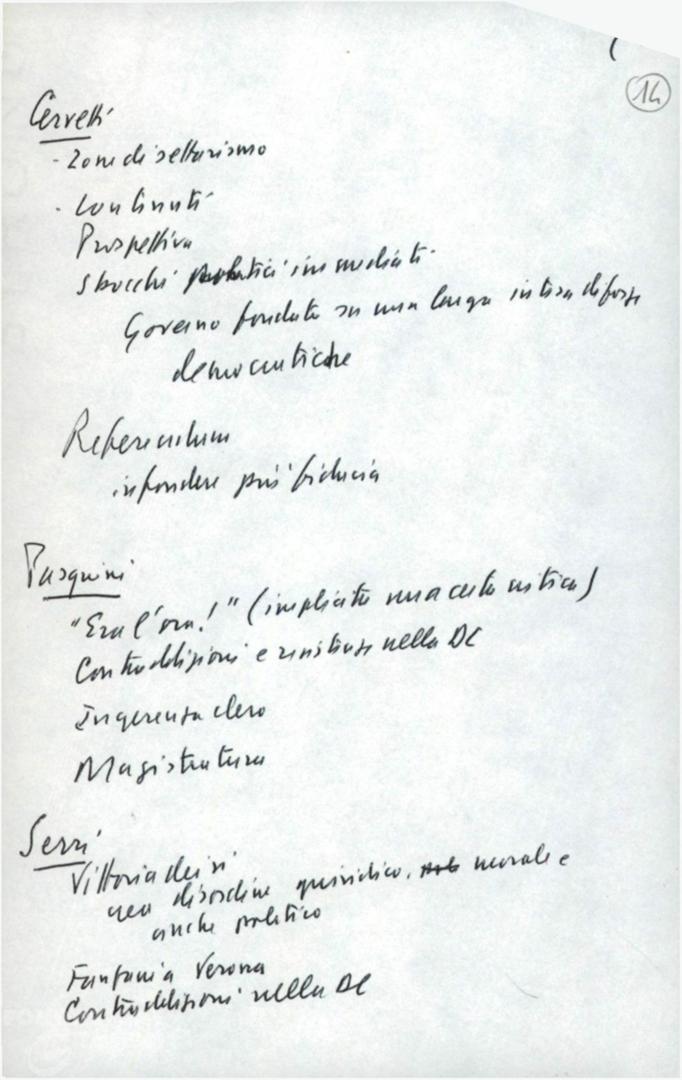 14
Cervetti
- Zone di settarismo
- Continuità
Prospettiva
Sbocchi politici immediati
Governo fondato su una larga intesa di forze
democratiche
Referendum
infondere più fiducia
Pasquini
"Era l'ora!" (implicita una certa critica)
Contraddizioni e resistenze nella DC
Ingerenza clero
Magistratura
Serri
Vittoria dei sì
crea disordine giuridico, morale e
anche politico
Fanfani a Verona
Contraddizioni nella DC